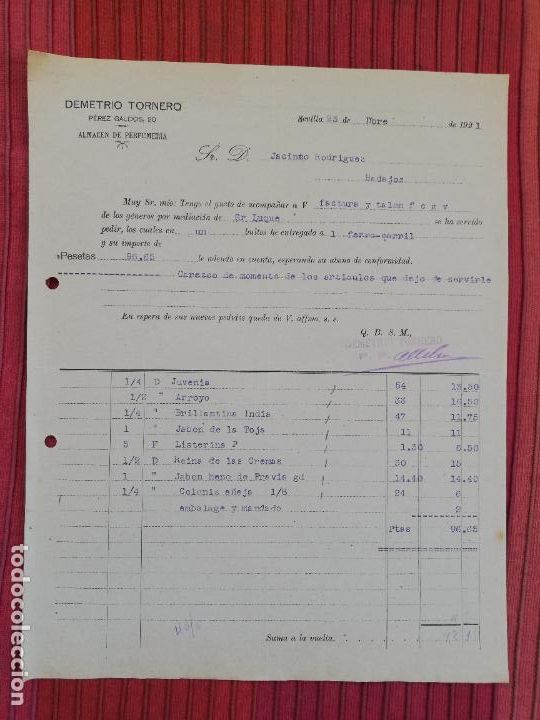 DEMETRIO TORNERO
PÉREZ GALDÓS, 20
ALMACÉN DE PERFUMERÍA
Sevilla 23 de Nbre de 1921
Sr. D. Jacinto Rodriguez
Badajoz
Muy Sr. mío: Tengo el gusto de acompañar a V factura y talon f c g v
de los géneros por mediación de Sr Luque se ha servido
pedir, los cuales en un bultos he entregado a l ferro-carril
y su importe de
Pesetas 96.65 le adendo en cuenta, esperando su abono de conformidad.
Carezco de momento de los articulos que dejo de servirle
En espera de sus nuevos pedidos queda de V. affmo. s. s.
Q. B. S. M.,
DEMETRIO TORNERO
P. P.
1/4 D Juvenia / 54 13.50
1/2 " Arroyo / 33 16.50
1/4 " Brillantina Indis / 47 11.75
1 " Jabon de la Toja / 11 11
5 F Listerina P / 1.30 6.50
1/2 D Reina de las Cremas / 30 15
1 " Jabon Heno de Pravia gd / 14.40 14.40
1/4 " Colonia añeja 1/8 / 24 6
embalage y mandado 2
Ptas 96.65
Suma a la vuelta.
todocoleccion